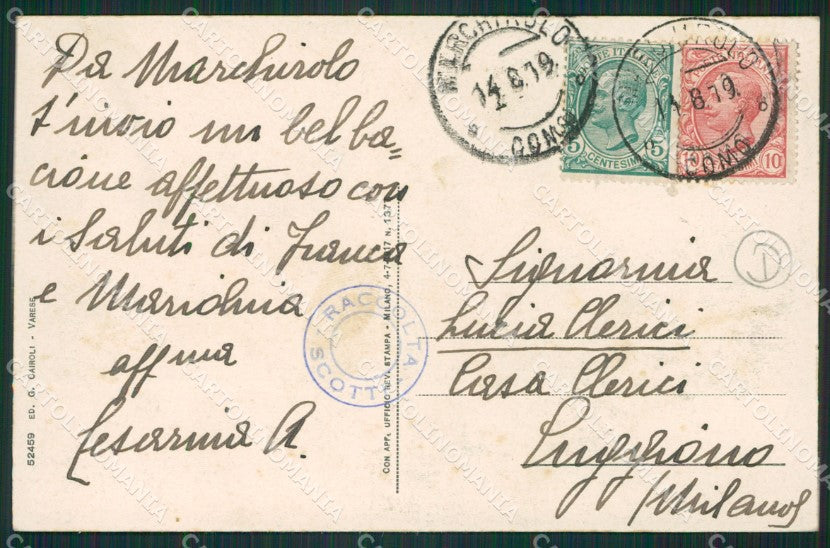 Da Marchirolo
t'invio un bel ba=
cione affettuoso con
i saluti di Franca
e Marichnia
aff ma
Cesarina A.
MARCHIROLO
14.8.19
COMO
14.8.19
COMO
5
CENTESIMI
5
10
10
Signorina
Lucia Clerici
Casa Clerici
Inzago
(Milano)
RACCOLTA
SCOTTI
52459 ED. G. CAIROLI - VARESE
CON APP. UFFICIO REV. STAMPA - MILANO, 4-7-917 N. 137
CARTOLINOMANIA